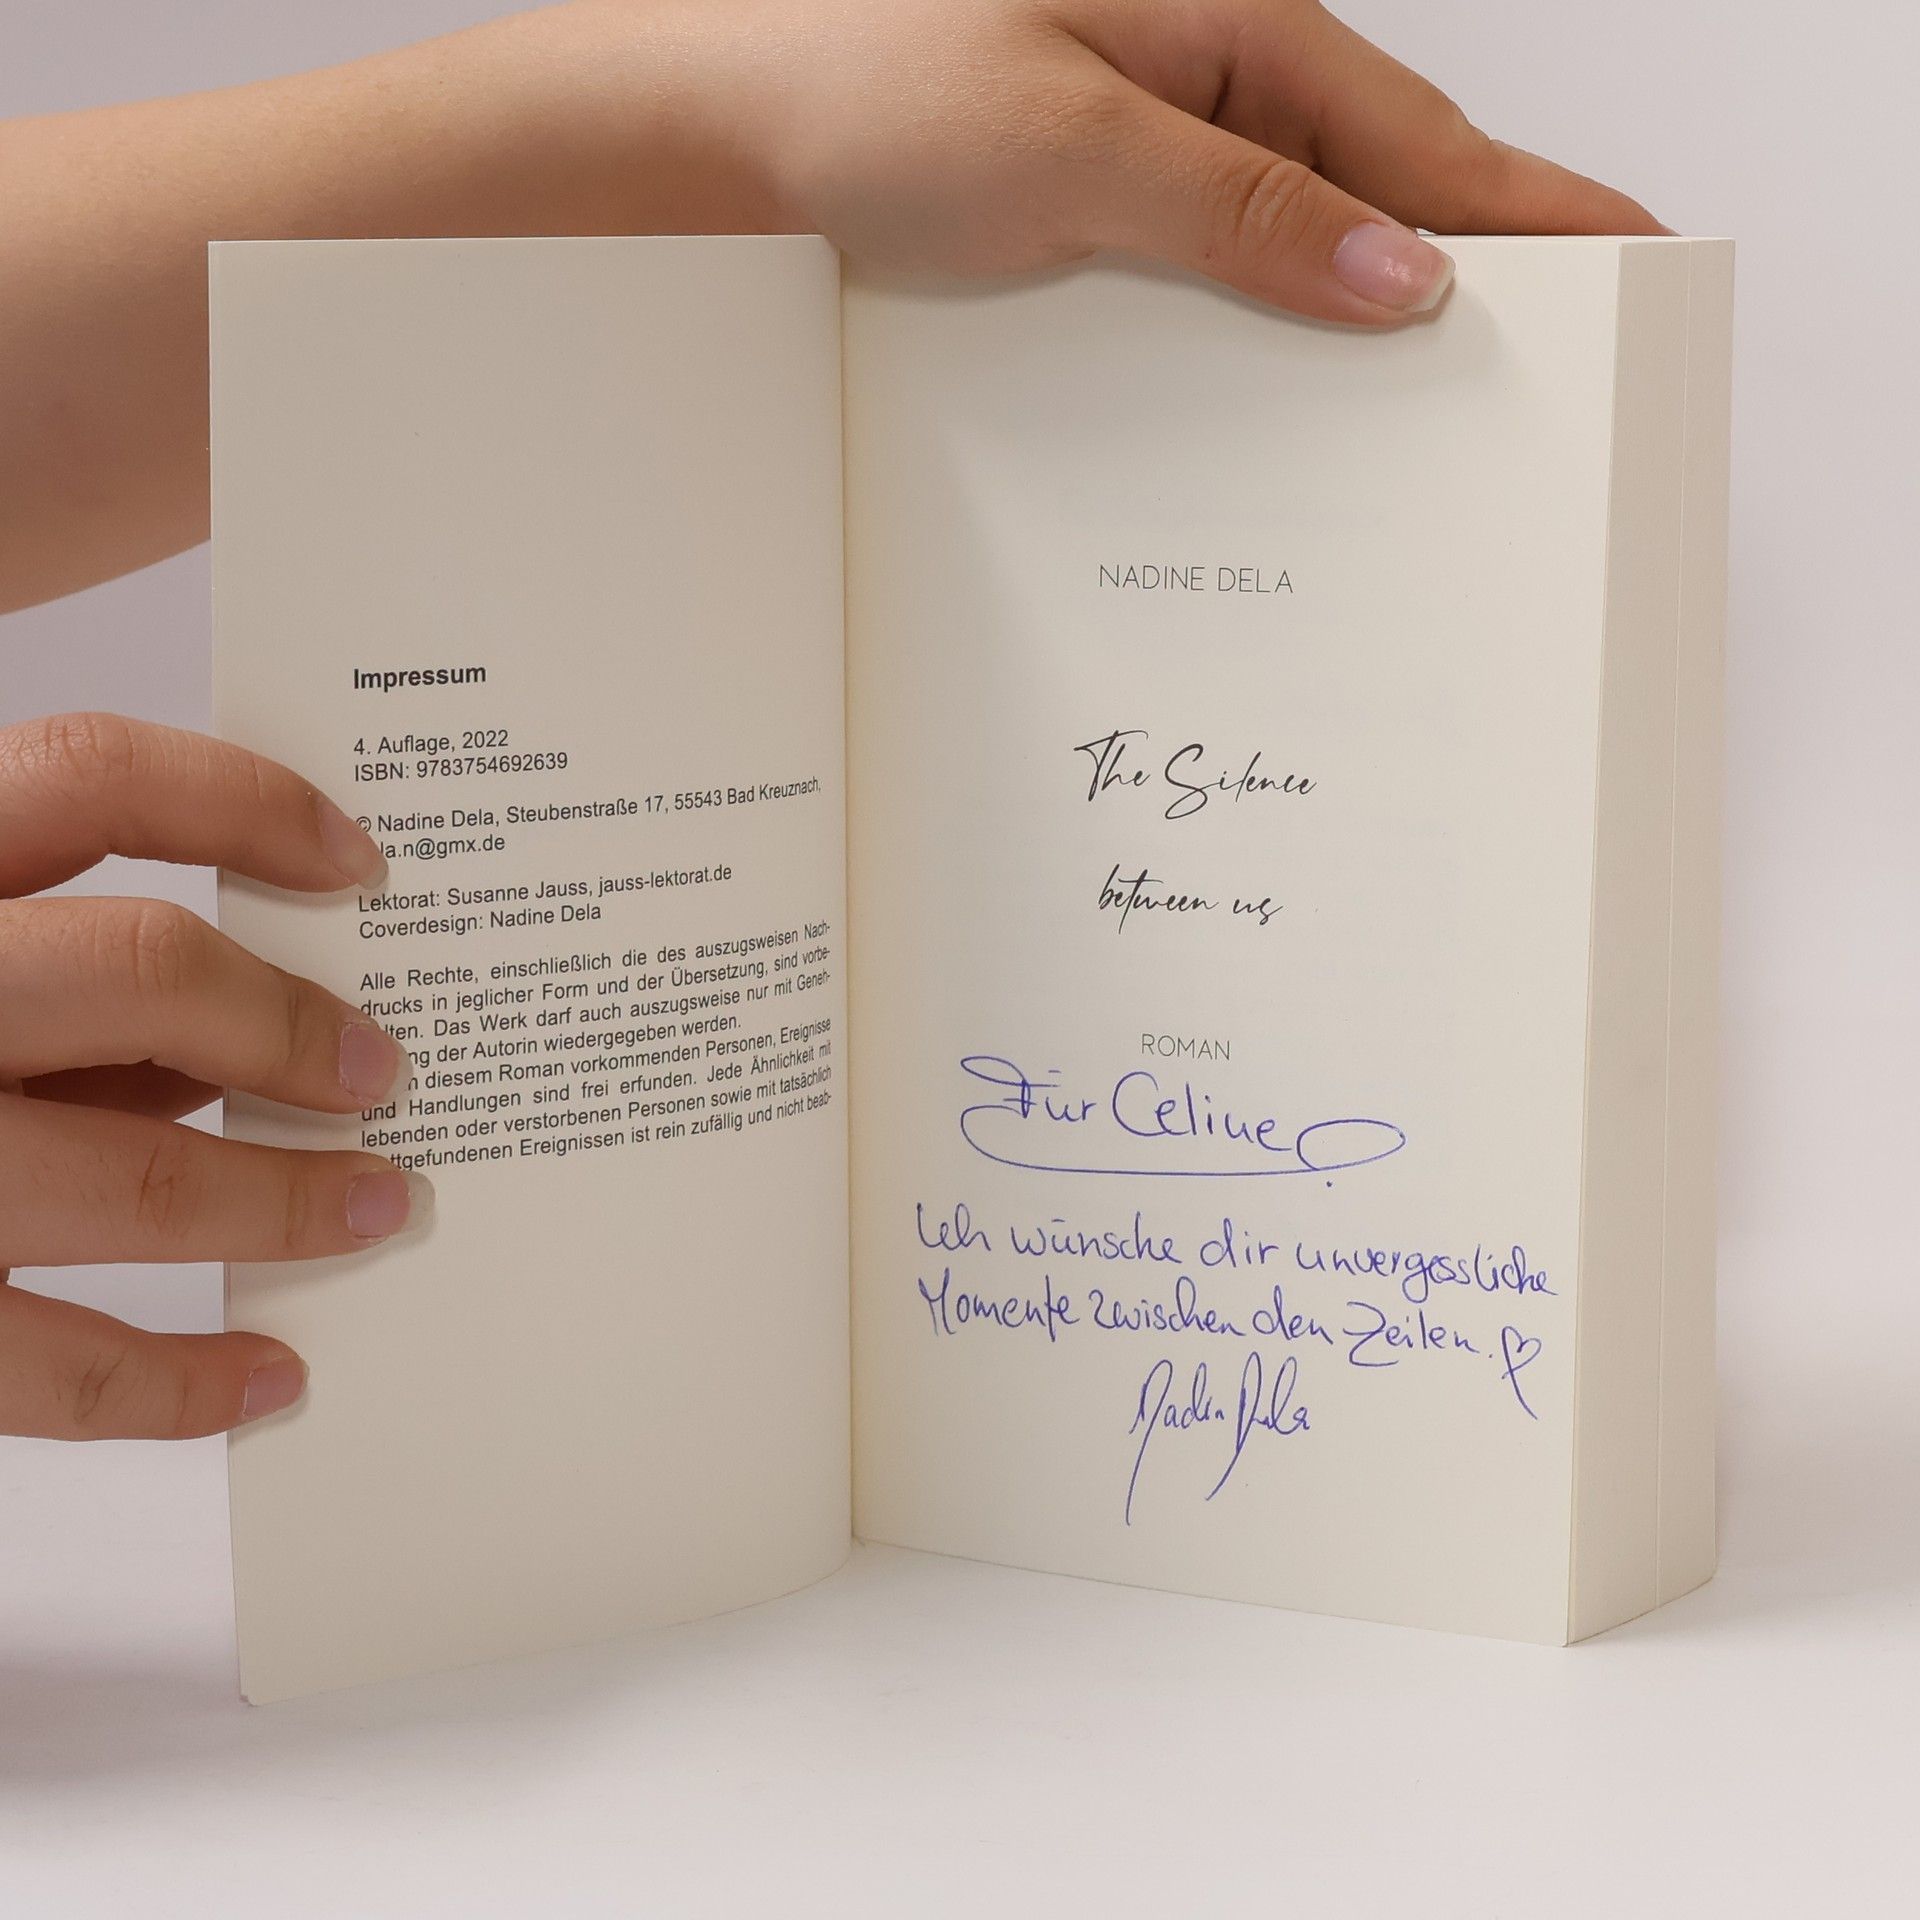 Impressum
4. Auflage, 2022
ISBN: 9783754692639
© Nadine Dela, Steubenstraße 17, 55543 Bad Kreuznach,
la.n@gmx.de
Lektorat: Susanne Jauss, jauss-lektorat.de
Coverdesign: Nadine Dela
Alle Rechte, einschließlich die des auszugsweisen Nach-
drucks in jeglicher Form und der Übersetzung, sind vorbe-
lten. Das Werk darf auch auszugsweise nur mit Geneh-
ng der Autorin wiedergegeben werden.
n diesem Roman vorkommenden Personen, Ereignisse
und Handlungen sind frei erfunden. Jede Ähnlichkeit mit
lebenden oder verstorbenen Personen sowie mit tatsächlich
ttgefundenen Ereignissen ist rein zufällig und nicht beab-
NADINE DELA
The Silence
between us
ROMAN
Für Celine
Ich wünsche dir unvergessliche
Momente zwischen den Zeilen.
Nadin Dela